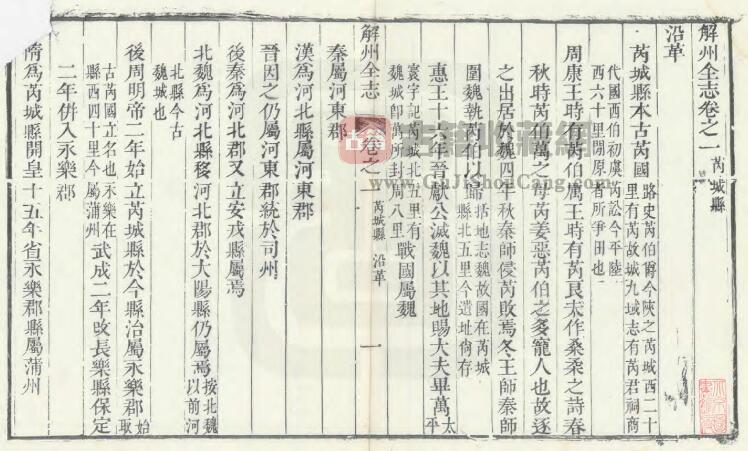 解州全志卷之一 芮城縣
沿革
芮城縣本古芮國 路史芮伯爵今陜之芮城西二十
里有芮故城九域志有芮君祠商
代國西伯初虞芮訟今平陸
西六十里閒原者所爭田也
周康王時有芮伯厲王時有芮良夫作桑柔之詩春
秋時芮伯萬之母芮姜惡芮伯之多寵人也故逐
之出居於魏四年秋秦師侵芮敗焉冬王師秦師
圍魏執芮伯以歸 括地志魏故國在芮城
縣北五里今遺址尙存
惠王十六年晉獻公滅魏以其地賜大夫畢萬 太平
寰宇記芮城北五里有
魏城卽萬所封周八里 戰國屬魏
解州全志 卷之一 芮城縣 沿革 一
秦屬河東郡
漢爲河北縣屬河東郡
晉因之仍屬河東郡統於司州
後秦爲河北郡又立安戎縣屬焉
北魏爲河北縣移河北郡於大陽縣仍屬焉 按北魏
以前河
北縣今古
魏城也
後周明帝二年始立芮城縣於今縣治屬永樂郡 始取
古芮國立名也永樂在
縣西四十里今屬蒲州 武成二年改長樂縣保定
二年併入永樂郡
隋爲芮城縣開皇十五年省永樂郡縣屬蒲州